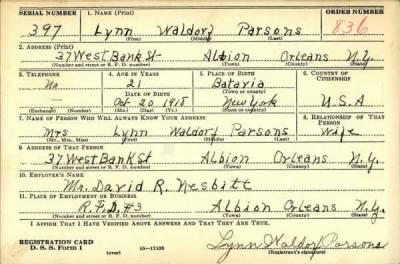 SERIAL NUMBER 1. NAME (Print) ORDER NUMBER
397 Lynn Waldorf Parsons 836
(First) (Middle) (Last)
2. ADDRESS (Print)
37 West Bank St Albion Orleans N.Y.
(Number and street or R. F. D. number) (Town) (County) (State)
3. TELEPHONE 4. AGE IN YEARS 5. PLACE OF BIRTH 6. COUNTRY OF CITIZENSHIP
No 21 Batavia
DATE OF BIRTH (Town or county)
Oct 20 1918 New York U.S.A
(Exchange) (Number) (Mo.) (Day) (Yr.) (State or country)
7. NAME OF PERSON WHO WILL ALWAYS KNOW YOUR ADDRESS 8. RELATIONSHIP OF THAT PERSON
Mrs Lynn Waldorf Parsons Wife
(Mr., Mrs., Miss) (First) (Middle) (Last)
9. ADDRESS OF THAT PERSON
37 West Bank St Albion Orleans N.Y.
(Number and street or R. F. D. number) (Town) (County) (State)
10. EMPLOYER'S NAME
Mr. David R. Nesbitt
11. PLACE OF EMPLOYMENT OR BUSINESS
R.F.D. #3 Albion Orleans N.Y.
(Number and street or R. F. D. number) (Town) (County) (State)
I AFFIRM THAT I HAVE VERIFIED ABOVE ANSWERS AND THAT THEY ARE TRUE.
REGISTRATION CARD
D. S. S. Form 1 (over) 16—17105 Lynn Waldorf Parsons
(Registrant's signature)